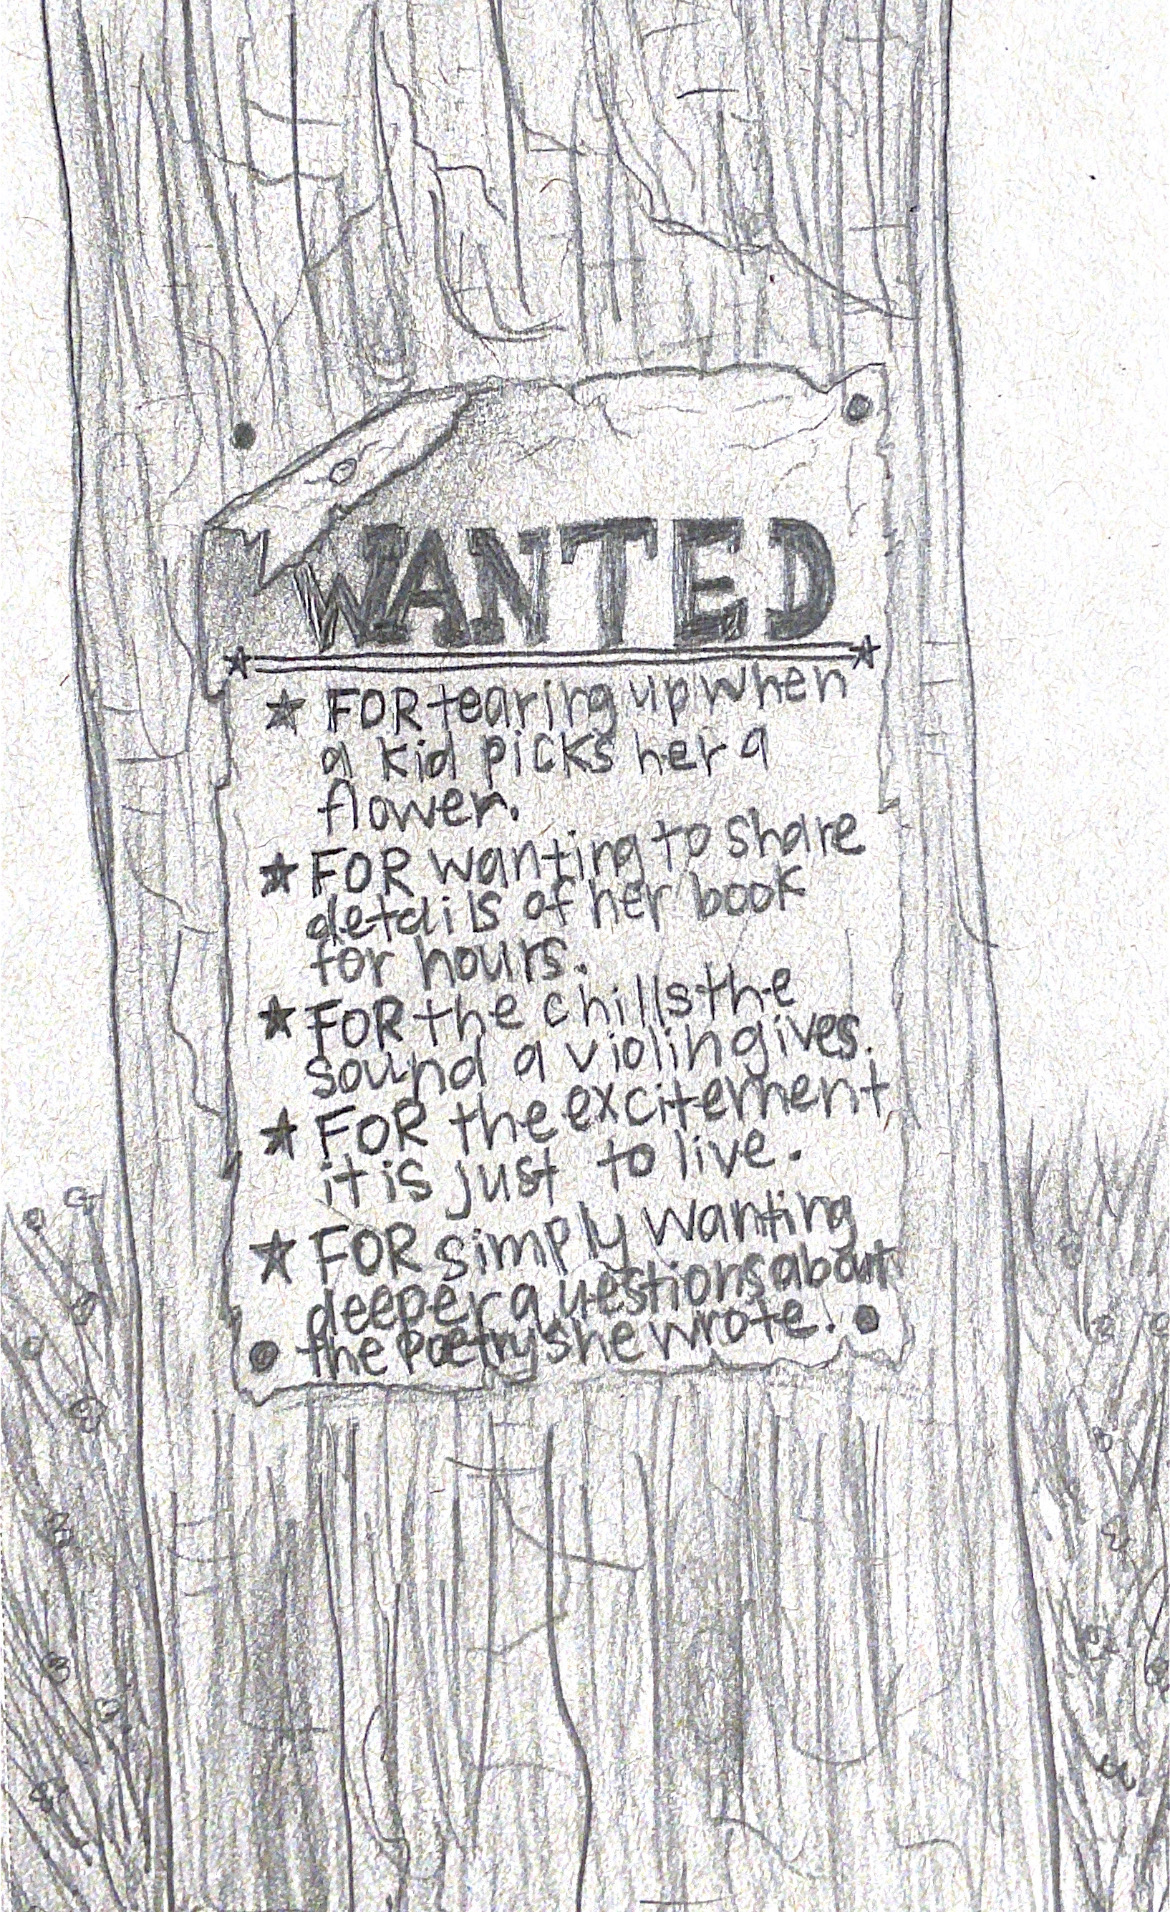 WANTED
★ FOR tearing up when
a kid picks her a
flower.
★ FOR wanting to share
details of her book
for hours.
★ FOR the chills the
sound a violin gives.
★ FOR the excitement
it is just to live.
★ FOR simply wanting
deeper questions about
the poetry she wrote.